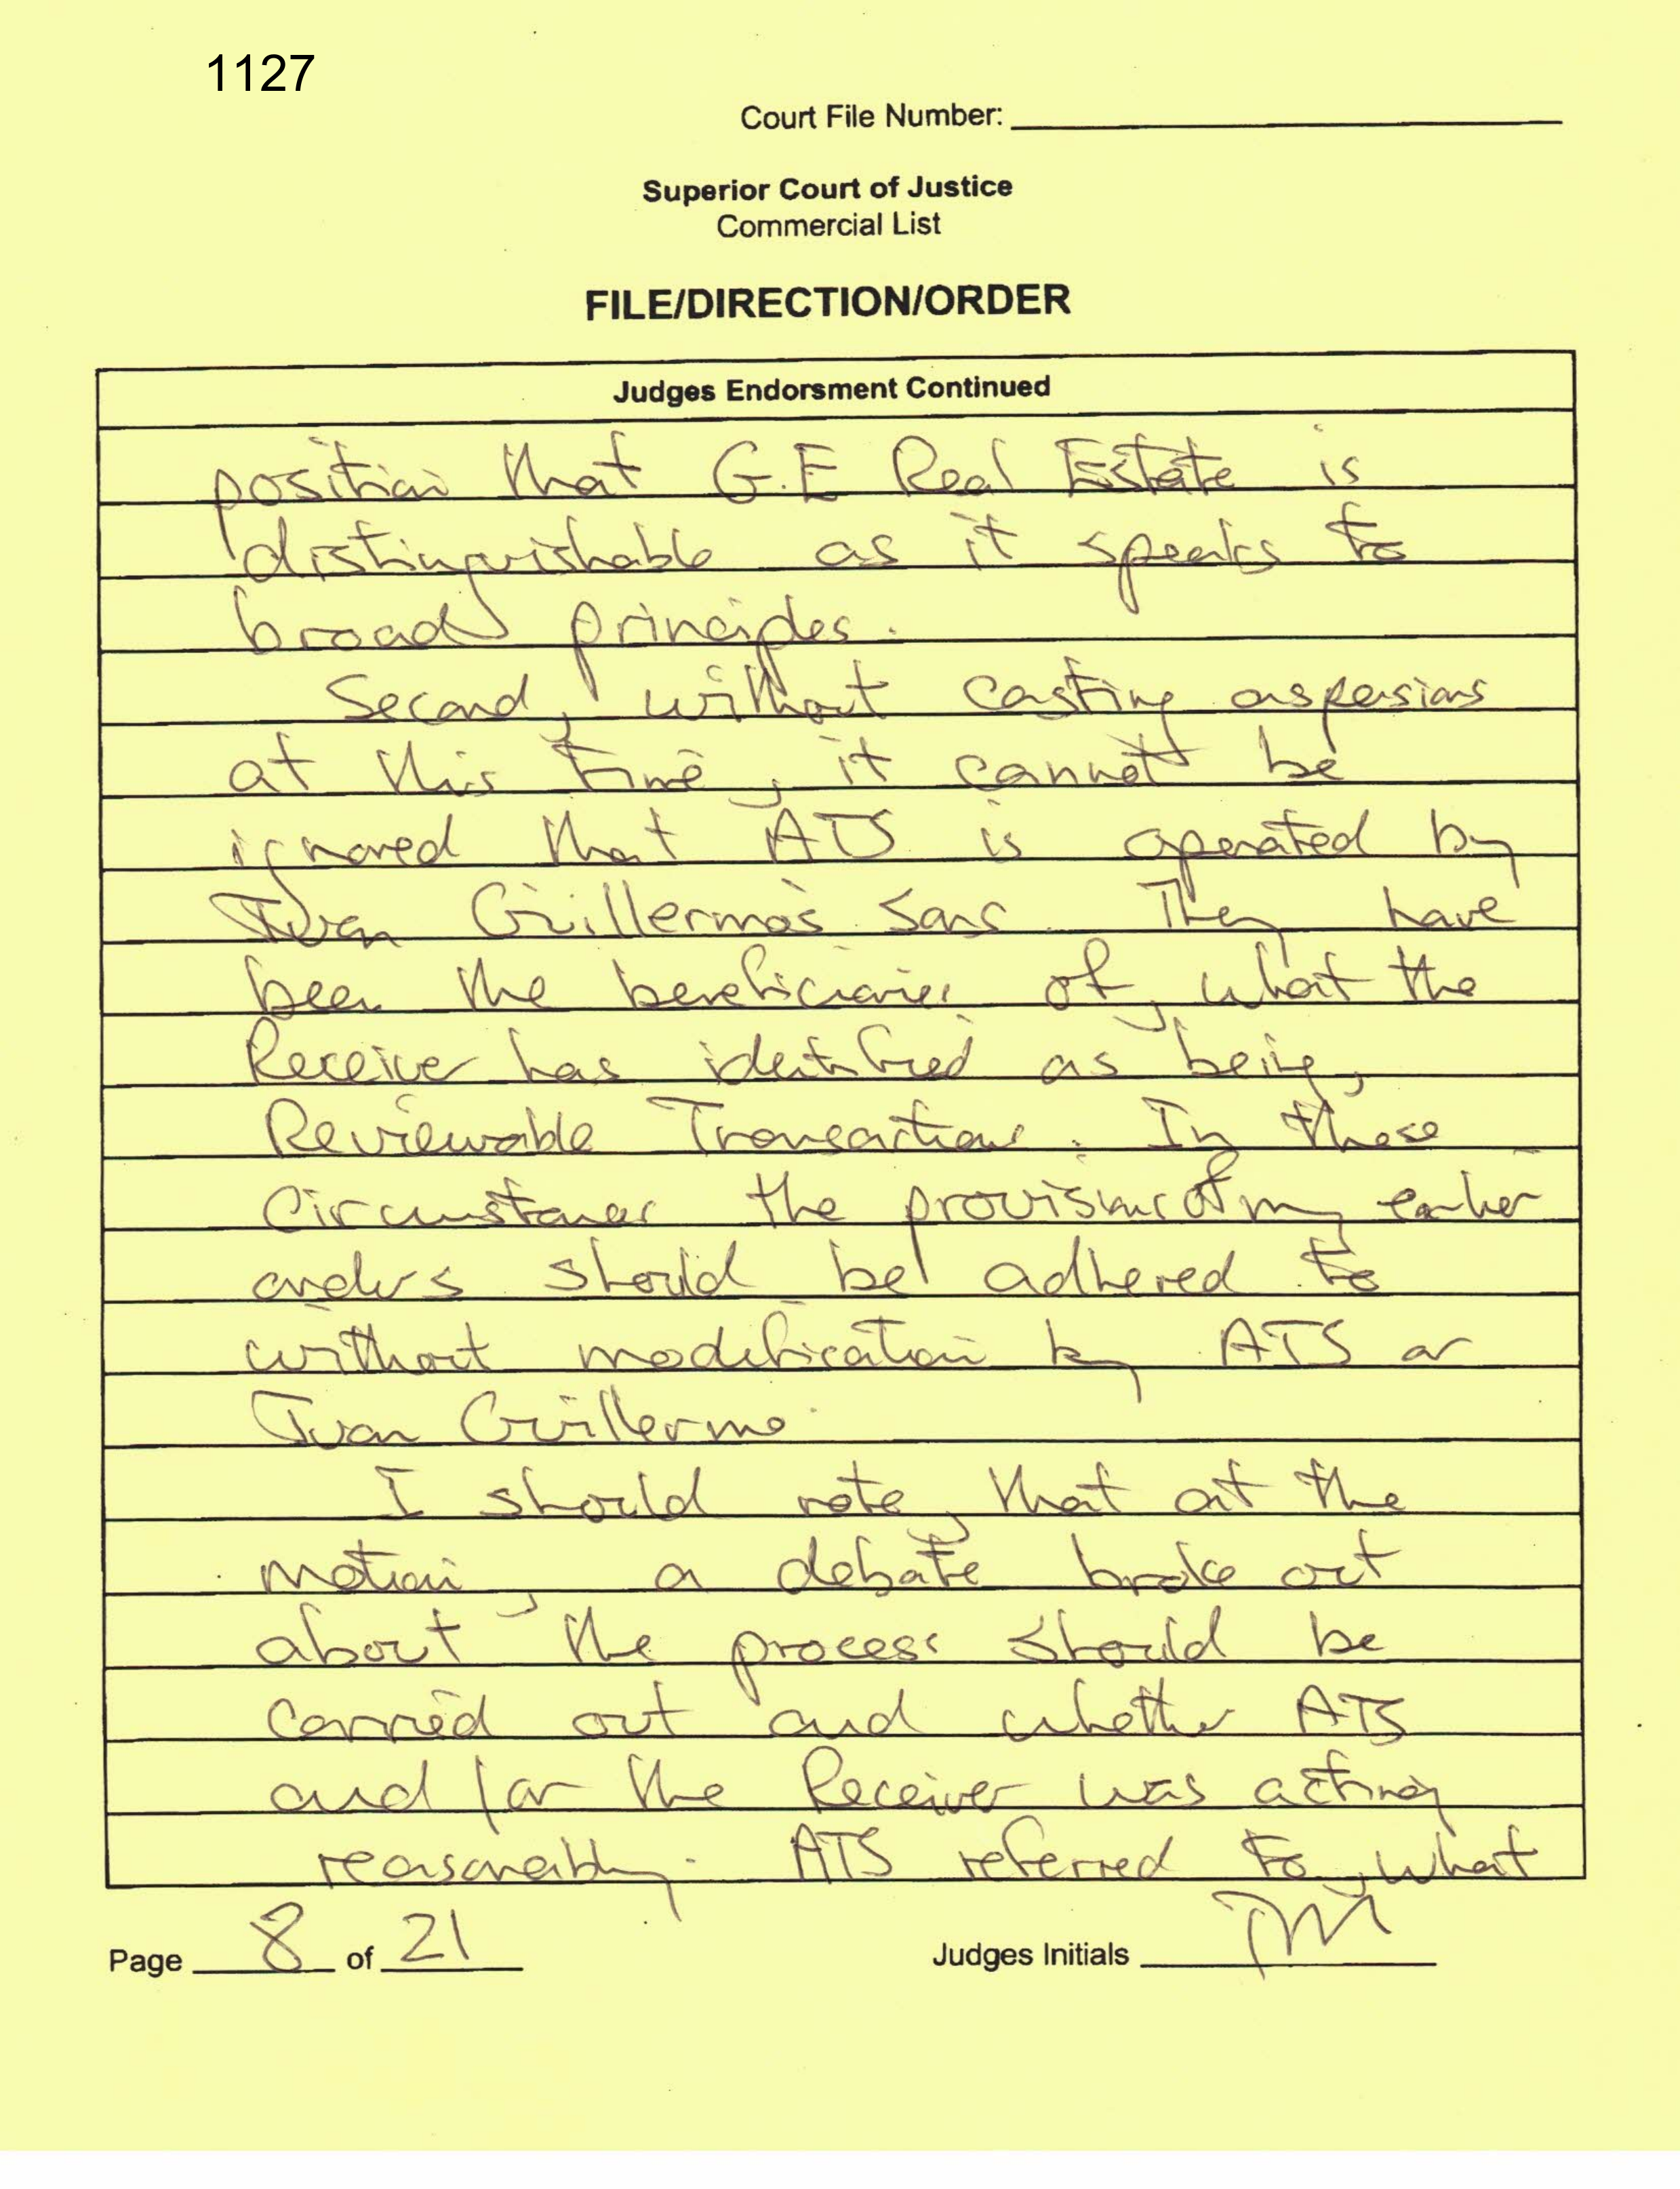 1127
Court File Number:
Superior Court of Justice
Commercial List
FILE/DIRECTION/ORDER
Judges Endorsment Continued
position that G.E Real Estate is
distinguishable as it speaks to
broad principles.
Second, without casting aspersions
at this time, it cannot be
ignored that ATS is operated by
Juan Guillermo's sons. They have
been the beneficiaries of, what the
Receiver has identified as being,
Reviewable Transactions. In these
circumstances the provisions of my earlier
orders should be adhered to
without modification by ATS or
Juan Guillermo.
I should note, that at the
motion, a debate broke out
about the process should be
carried out and whether ATS
and/or the Receiver was acting
reasonably. ATS referred to, what
Page 8 of 21
Judges Initials TM